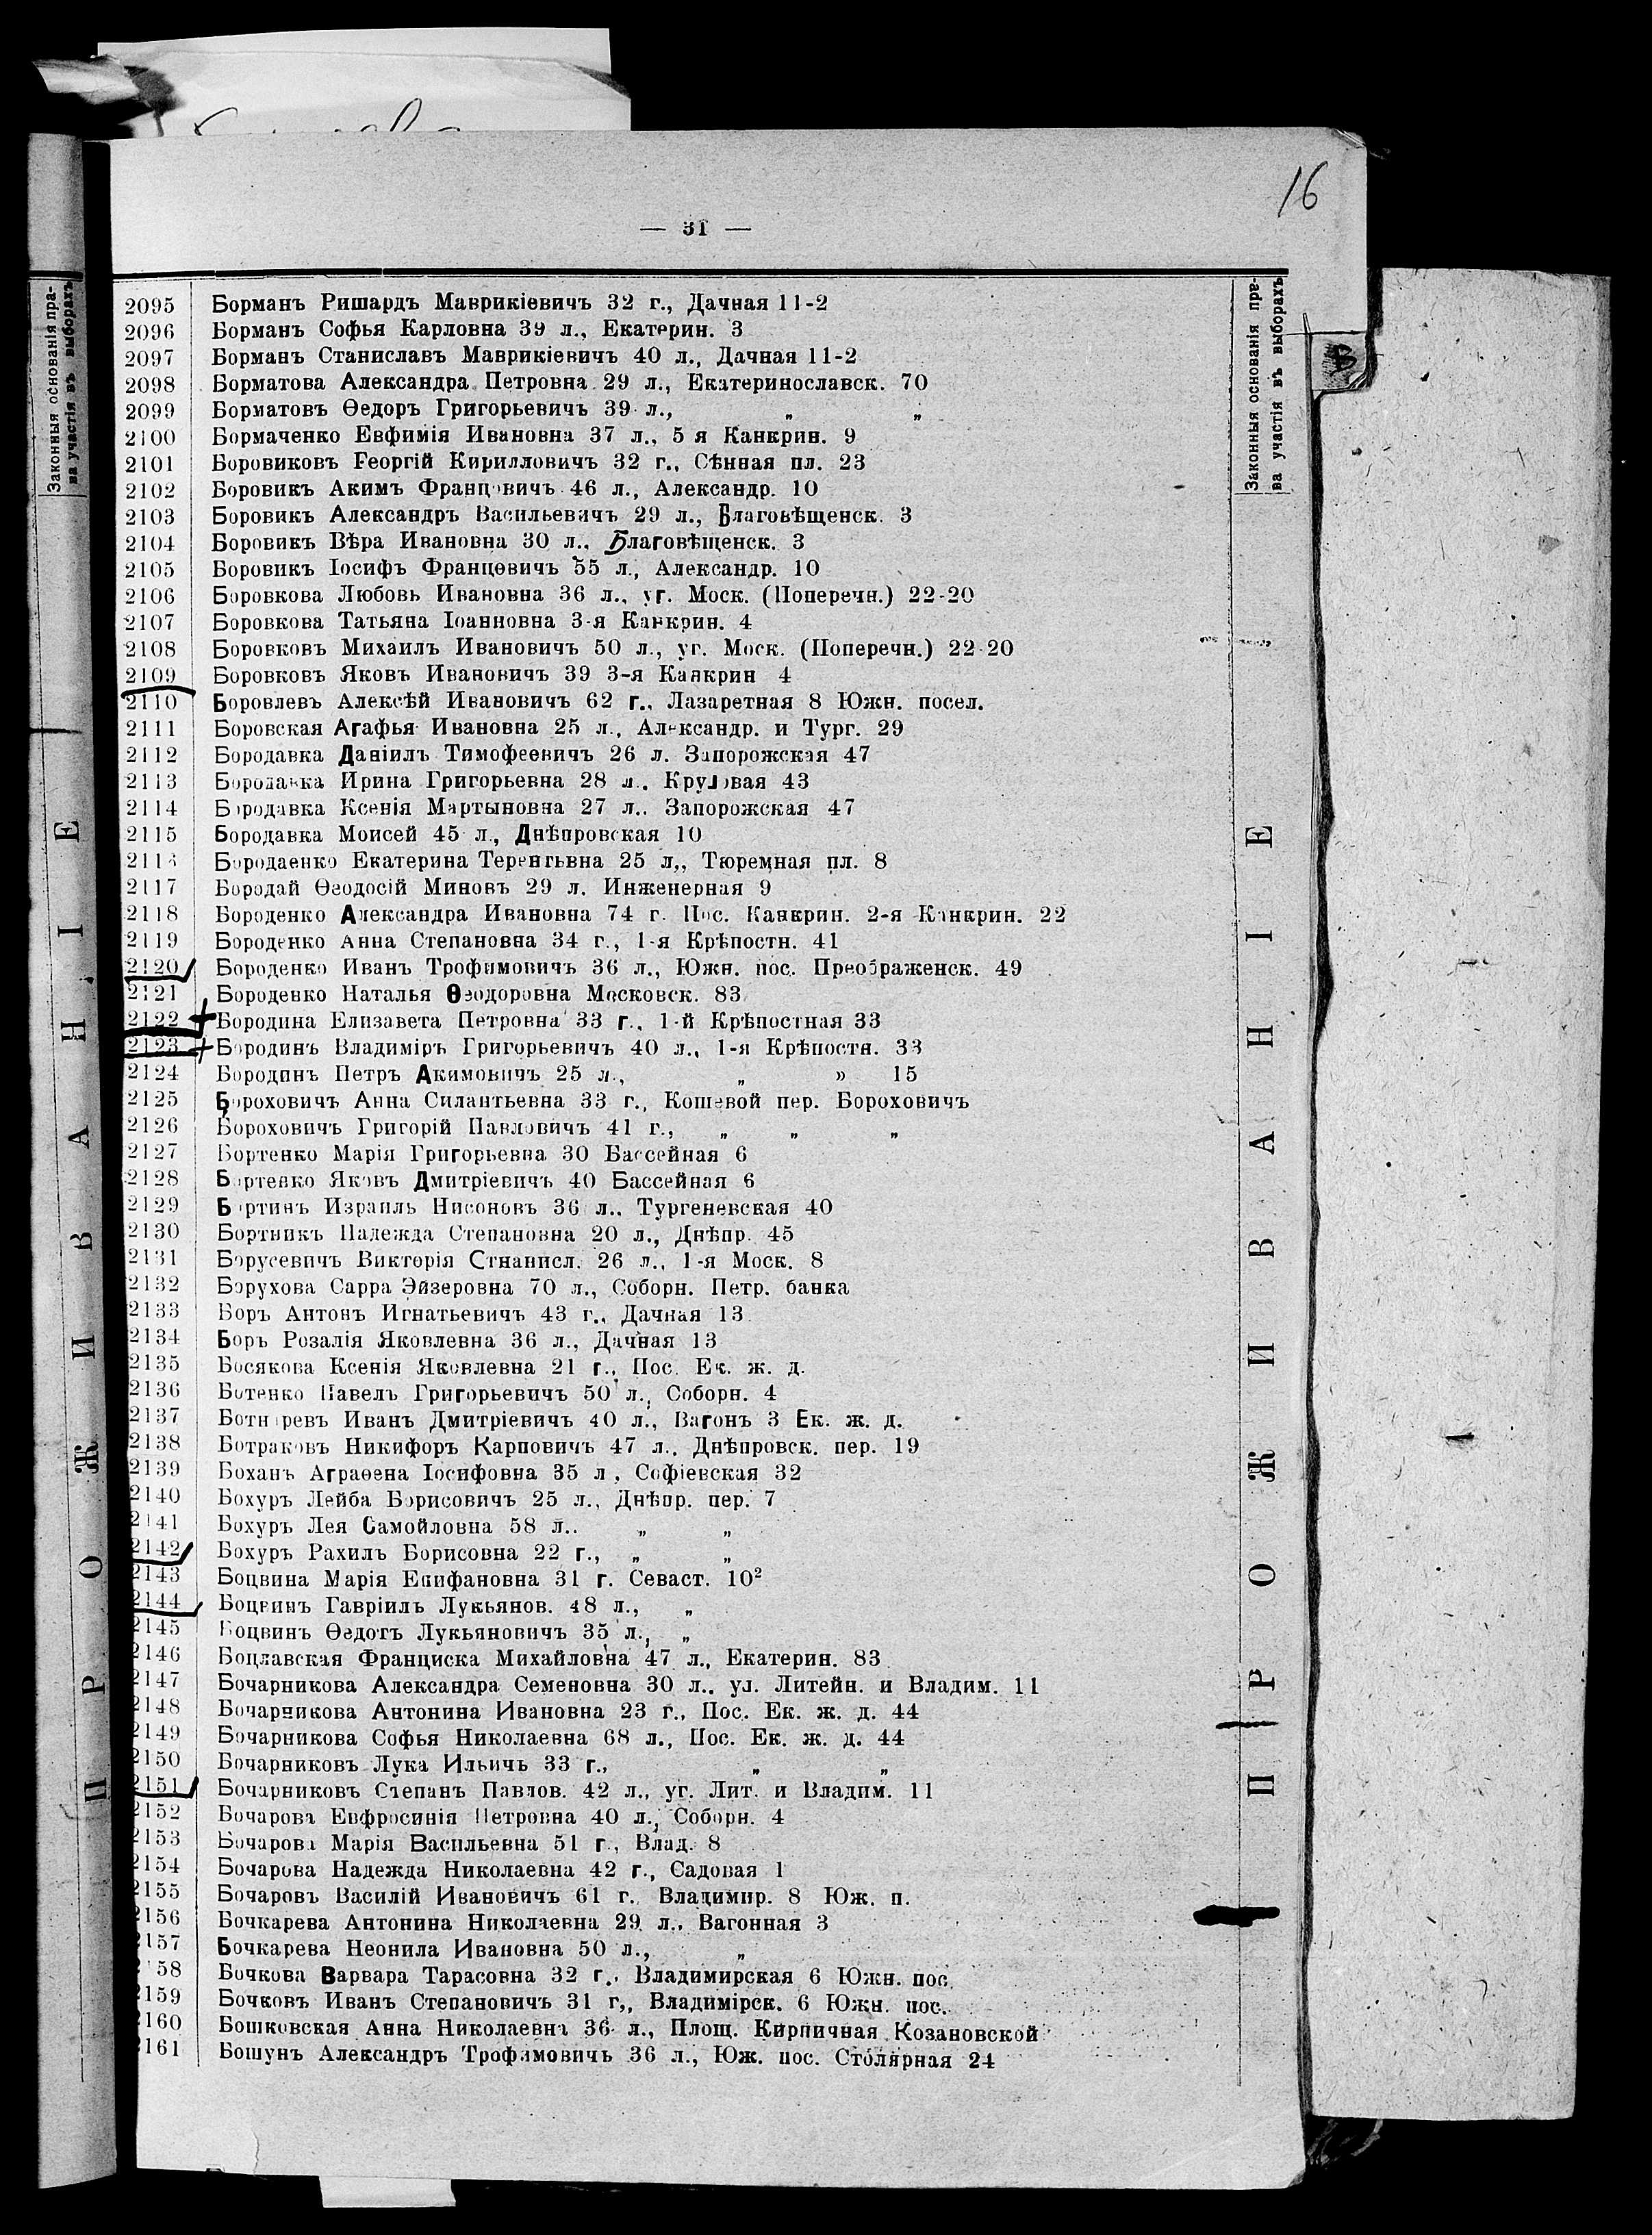 16
— 31 —
Законныя основанія пра-
ва участія въ выборахъ
2095 Борманъ Ришардъ Маврикіевичъ 32 г., Дачная 11-2
2096 Борманъ Софья Карловна 39 л., Екатерин. 3
2097 Борманъ Станиславъ Маврикіевичъ 40 л., Дачная 11-2
2098 Борматова Александра Петровна 29 л., Екатеринославск. 70
2099 Борматовъ Ѳедоръ Григорьевичъ 39 л., „ „
2100 Бормаченко Евфимія Ивановна 37 л., 5 я Канкрин. 9
2101 Боровиковъ Георгій Кирилловичъ 32 г., Сѣнная пл. 23
2102 Боровикъ Акимъ Францовичъ 46 л., Александр. 10
2103 Боровикъ Александръ Васильевичъ 29 л., Благовѣщенск. 3
2104 Боровикъ Вѣра Ивановна 30 л., Благовѣщенск. 3
2105 Боровикъ Іосифъ Францовичъ 55 л., Александр. 10
2106 Боровкова Любовь Ивановна 36 л., уг. Моск. (Поперечн.) 22-20
2107 Боровкова Татьяна Іоанновна 3-я Канкрин. 4
2108 Боровковъ Михаилъ Ивановичъ 50 л., уг. Моск. (Поперечн.) 22-20
2109 Боровковъ Яковъ Ивановичъ 39 3-я Канкрин 4
2110 Боровлевъ Алексѣй Ивановичъ 62 г., Лазаретная 8 Южн. посел.
2111 Боровская Агафья Ивановна 25 л., Александр. и Тург. 29
2112 Бородавка Даніилъ Тимофеевичъ 26 л. Запорожская 47
2113 Бородавка Ирина Григорьевна 28 л., Круговая 43
2114 Бородавка Ксенія Мартыновна 27 л.. Запорожская 47
2115 Бородавка Моисей 45 л., Днѣпровская 10
2116 Бородаенко Екатерина Терентьвна 25 л,, Тюремная пл. 8
2117 Бородай Ѳеодосій Миновъ 29 л. Инженерная 9
2118 Бороденко Александра Ивановна 74 г. Пос. Канкрин. 2-я Канкрин. 22
2119 Бороденко Анна Степановна 34 г., 1-я Крѣпостн. 41
2120 Бороденко Иванъ Трофимовичъ 36 л., Южн. пос. Преображенск. 49
2121 Бороденко Наталья Ѳеодоровна Московск. 83
2122 Бородина Елизавета Петровна 33 г., 1-й Крѣпостная 33
2123 Бородинъ Владиміръ Григорьевичъ 40 л., 1-я Крѣпостн. 33
2124 Бородинъ Петръ Акимовичъ 25 л., „ » 15
2125 Бороховичъ Анна Силантьевна 33 г., Кошевой пер. Бороховичъ
2126 Бороховичъ Григорій Павловичъ 41 г., „ „ „
2127 Бортенко Марія Григорьевна 30 Бассейная 6
2128 Бортенко Яковъ Дмитріевичъ 40 Бассейная 6
2129 Бортинъ Израиль Нисоновъ 36 л.. Тургеневская 40
2130 Бортникъ Надежда Степановна 20 л., Днѣпр. 45
2131 Борусевичъ Викторія Стнанисл. 26 л., 1-я Моск. 8
2132 Борухова Сарра Эйзеровна 70 л., Соборн. Петр. банка
2133 Боръ Антонъ Игнатьевичъ 43 г., Дачная 13
2134 Боръ Розалія Яковлевна 36 л., Дачная 13
2135 Босякова Ксенія Яковлевна 21 г., Пос. Ек. ж. д.
2136 Ботенко Павелъ Григорьевичъ 50 л., Соборн. 4
2137 Ботнаревъ Иванъ Дмитріевичъ 40 л., Вагонъ 3 Ек. ж. д.
2138 Ботраковъ Никифоръ Карповичъ 47 л., Днѣпровск. пер. 19
2139 Боханъ Аграѳена Іосифовна 35 л, Софіевская 32
2140 Бохуръ Лейба Борисовичъ 25 л., Днѣпр. пер. 7
2141 Бохуръ Лея Самойловна 58 л.. „ „
2142 Бохуръ Рахилъ Борисовна 22 г., „ „
2143 Боцвина Марія Епифановна 31 г. Севаст. 10²
2144 Боцвинъ Гавріилъ Лукьянов. 48 л., „
2145 Боцвинъ Ѳедотъ Лукьяновичъ 35 л., „
2146 Боцлавская Франциска Михайловна 47 л., Екатерин. 83
2147 Бочарникова Александра Семеновна 30 л.. ул. Литейн. и Владим. 11
2148 Бочарникова Антонина Ивановна 23 г., Пос. Ек. ж. д. 44
2149 Бочарникова Софья Николаевна 68 л., Пос. Ек. ж. д. 44
2150 Бочарниковъ Лука Ильичъ 33 г., „ „
2151 Бочарниковъ Степанъ Павлов. 42 л., уг. Лит. и Владим. 11
2152 Бочарова Евфросинія Петровна 40 л., Соборн. 4
2153 Бочарова Марія Васильевна 51 г., Влад. 8
2154 Бочарова Надежда Николаевна 42 г., Садовая 1
2155 Бочаровъ Василій Ивановичъ 61 г. Владимир. 8 Юж. п.
2156 Бочкарева Антонина Николаевна 29 л., Вагонная 3
2157 Бочкарева Неонила Ивановна 50 л., „
2158 Бочкова Варвара Тарасовна 32 г., Владимирская 6 Южн. пос.
2159 Бочковъ Иванъ Степановичъ 31 г,, Владимірск. 6 Южн. пос.
2160 Бошковская Анна Николаевна 36 л., Площ. Кирпичная Козановской
2161 Бошунъ Александръ Трофимовичъ 36 л., Юж. пос. Столярная 24
Законныя основанія пра-
ва участія въ выборахъ
ПРОЖИВАНІЕ
ПРОЖИВАНІЕ
В